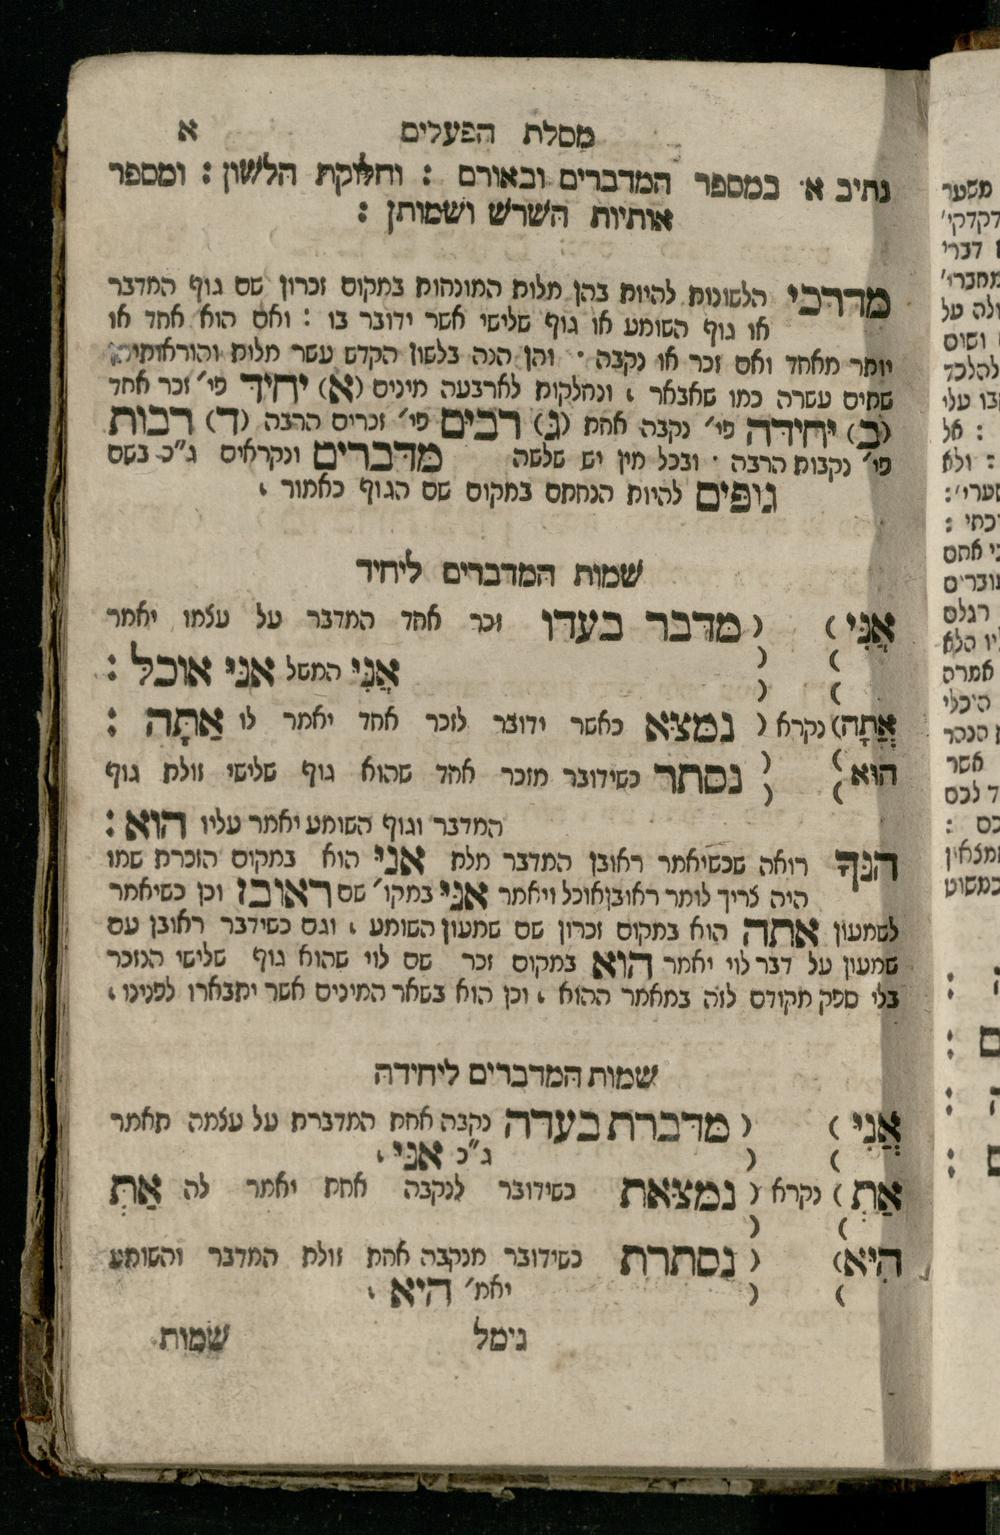 מסלת הפעלים א
נתיב א׳ במספר המדברים ובאורם : וחלוקת הלשון : ומספר
אותיות השרש ושמותן :
מדרכי הלשונות להיות בהן מלות המונחות במקום זכרון שם גוף המדבר
או גוף השומע או גוף שלישי אשר ידובר בו : ואם הוא אחד או
יותר מאחד ואם זכר או נקבה · והן הנה בלשון הקדש עשר מלות והוראותיהן
שתים עשרה כמו שאבאר , ונחלקות לארבעה מינים (א) יחיד פי׳ זכר אחד
(ב) יחידה פי׳ נקבה אחת (ג) רבים פי׳ זכרים הרבה (ד) רבות
פי׳ נקבות הרבה · ובכל מין יש שלשה מדברים ונקראים ג״כ בשם
גופים להיות הנחתם במקום שם הגוף כאמור ,
שמות המדברים ליחיד
אֲנִי ) ( מדבר בעדו זכר אחד המדבר על עצמו יאמר
) ( אֲנִי המשל אני אוכל :
) (
אַתָּה) נקרא ( נמצא כאשר ידובר לזכר אחד יאמר לו אַתָּה :
הוא ) ( נסתר כשידובר מזכר אחד שהוא גוף שלישי זולת גוף
) ( המדבר וגוף השומע יאמר עליו הוא :
הנך רואה שכשיאמר ראובן המדבר מלת אני הוא במקום הזכרת שמו
היה צריך לומר ראובן אוכל ויאמר אני במקו׳ שם ראובן וכן כשיאמר
לשמעון אתה הוא במקום זכרון שם שמעון השומע , וגם כשידבר ראובן עם
שמעון על דבר לוי יאמר הוא במקום זכר שם לוי שהוא גוף שלישי הנזכר
בלי ספק מקודם לזה במאמר ההוא , וכן הוא בשאר המינים אשר יתבארו לפנינו ,
שמות המדברים ליחידה
אֲנִי ) ( מדברת בעדה נקבה אחת המדברת על עצמה תאמר
) ( ג״כ אני ,
אַתְּ ) נקרא ( נמצאת כשידובר לנקבה אחת יאמר לה אַתְּ
) (
הִיא) ( נסתרת כשידובר מנקבה אחת זולת המדבר והשומע
) ( יאמ׳ היא ,
גימל שמות